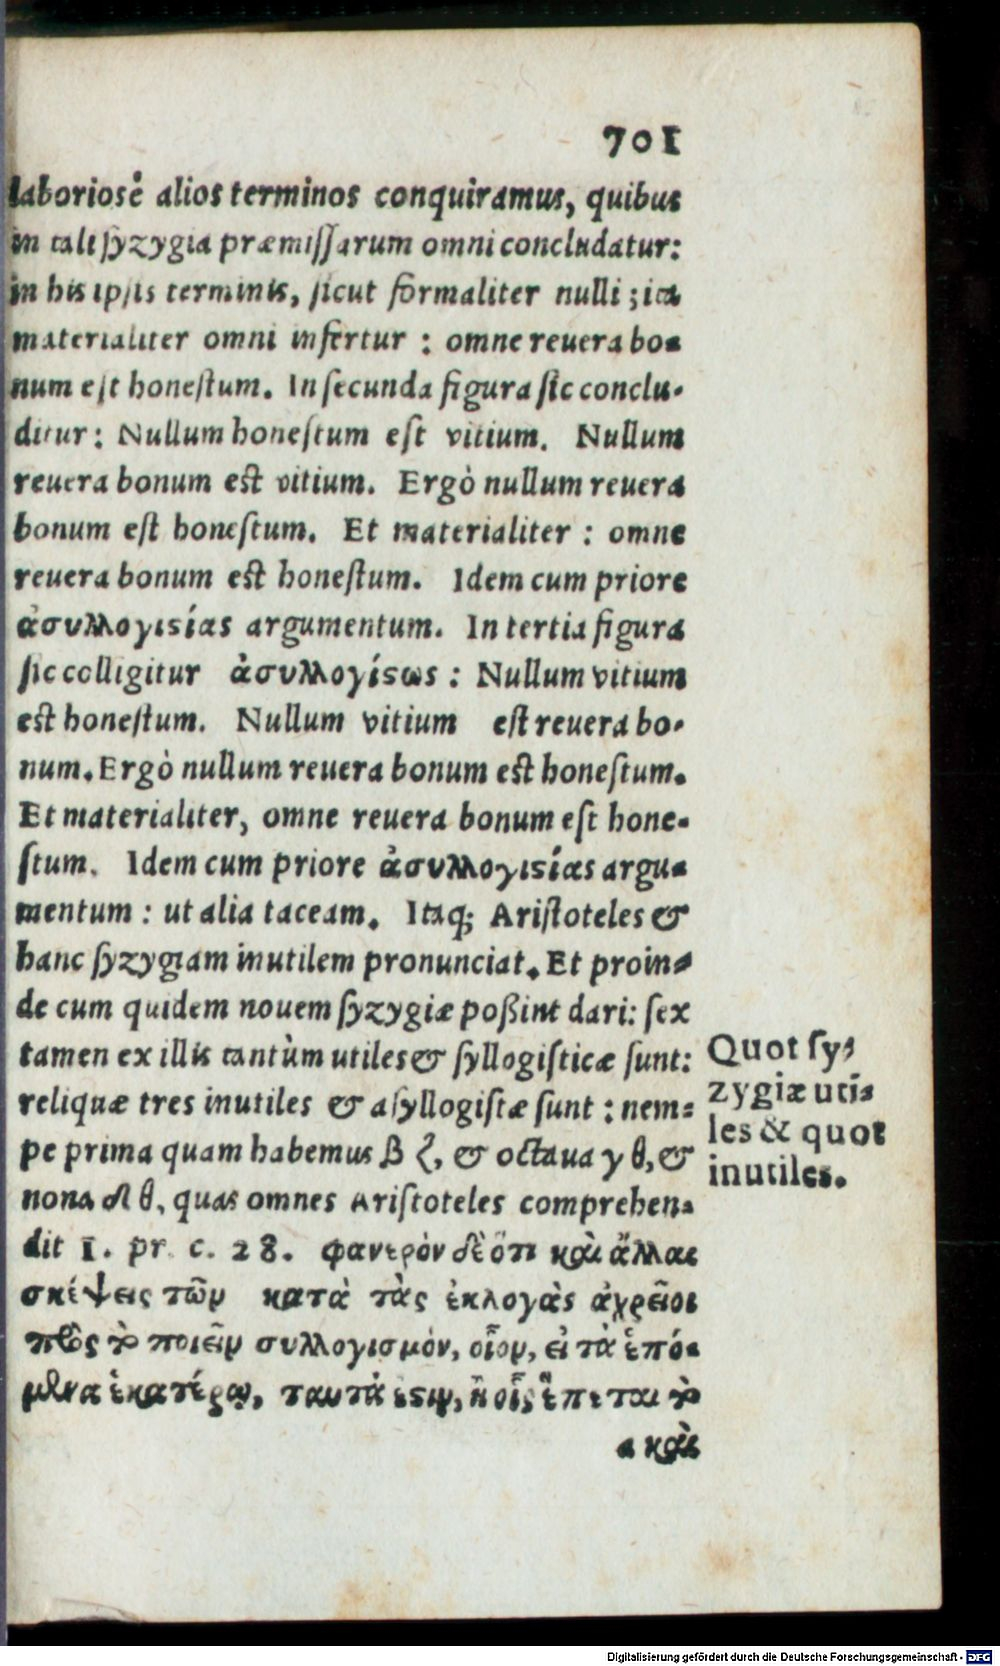 701
laboriosè alios terminos conquiramus, quibus
in tali ſyzygia præmiſſarum omni concludatur:
in his ipſis terminis, ſicut formaliter nulli; ita
materialiter omni infertur : omne reuera bo-
num eſt honeſtum. In ſecunda figura ſic conclu-
ditur: Nullum honeſtum eſt vitium. Nullum
reuera bonum eſt vitium. Ergò nullum reuera
bonum eſt honeſtum. Et materialiter : omne
reuera bonum eſt honeſtum. Idem cum priore
ἀσυλλογιϛίας argumentum. In tertia figura
ſic colligitur ἀσυλλογίϛως : Nullum vitium
eſt honeſtum. Nullum vitium eſt reuera bo-
num. Ergò nullum reuera bonum eſt honeſtum.
Et materialiter, omne reuera bonum eſt hone-
ſtum. Idem cum priore ἀσυλλογιϛίας argu-
mentum : ut alia taceam. Itaq; Ariſtoteles &
hanc ſyzygiam inutilem pronunciat. Et proin-
de cum quidem nouem ſyzygiæ poßint dari: ſex
tamen ex illis tantùm utiles & ſyllogiſticæ ſunt:
reliquæ tres inutiles & aſyllogiſtæ ſunt : nem-
pe prima quam habemus β ζ, & octaua γ θ, &
nona δ θ, quas omnes Ariſtoteles comprehen-
dit 1. pr. c. 28. φανερὸν δὲ ὅτι καὶ ἄλλαι
σκέψεις τῶν κατὰ τὰς ἐκλογὰς ἀχρεῖοι
πρὸς τὸ ποιεῖν συλλογισμὸν, οἷον, εἰ τὰ ἑπό-
μενα ἑκατέρῳ, ταυτά ἐϛιν, ἢ οἷς ἕπεται τὸ
α καὶ
Quot ſy-
zygiæ uti-
les & quot
inutiles.
Digitalisierung gefördert durch die Deutsche Forschungsgemeinschaft - DFG